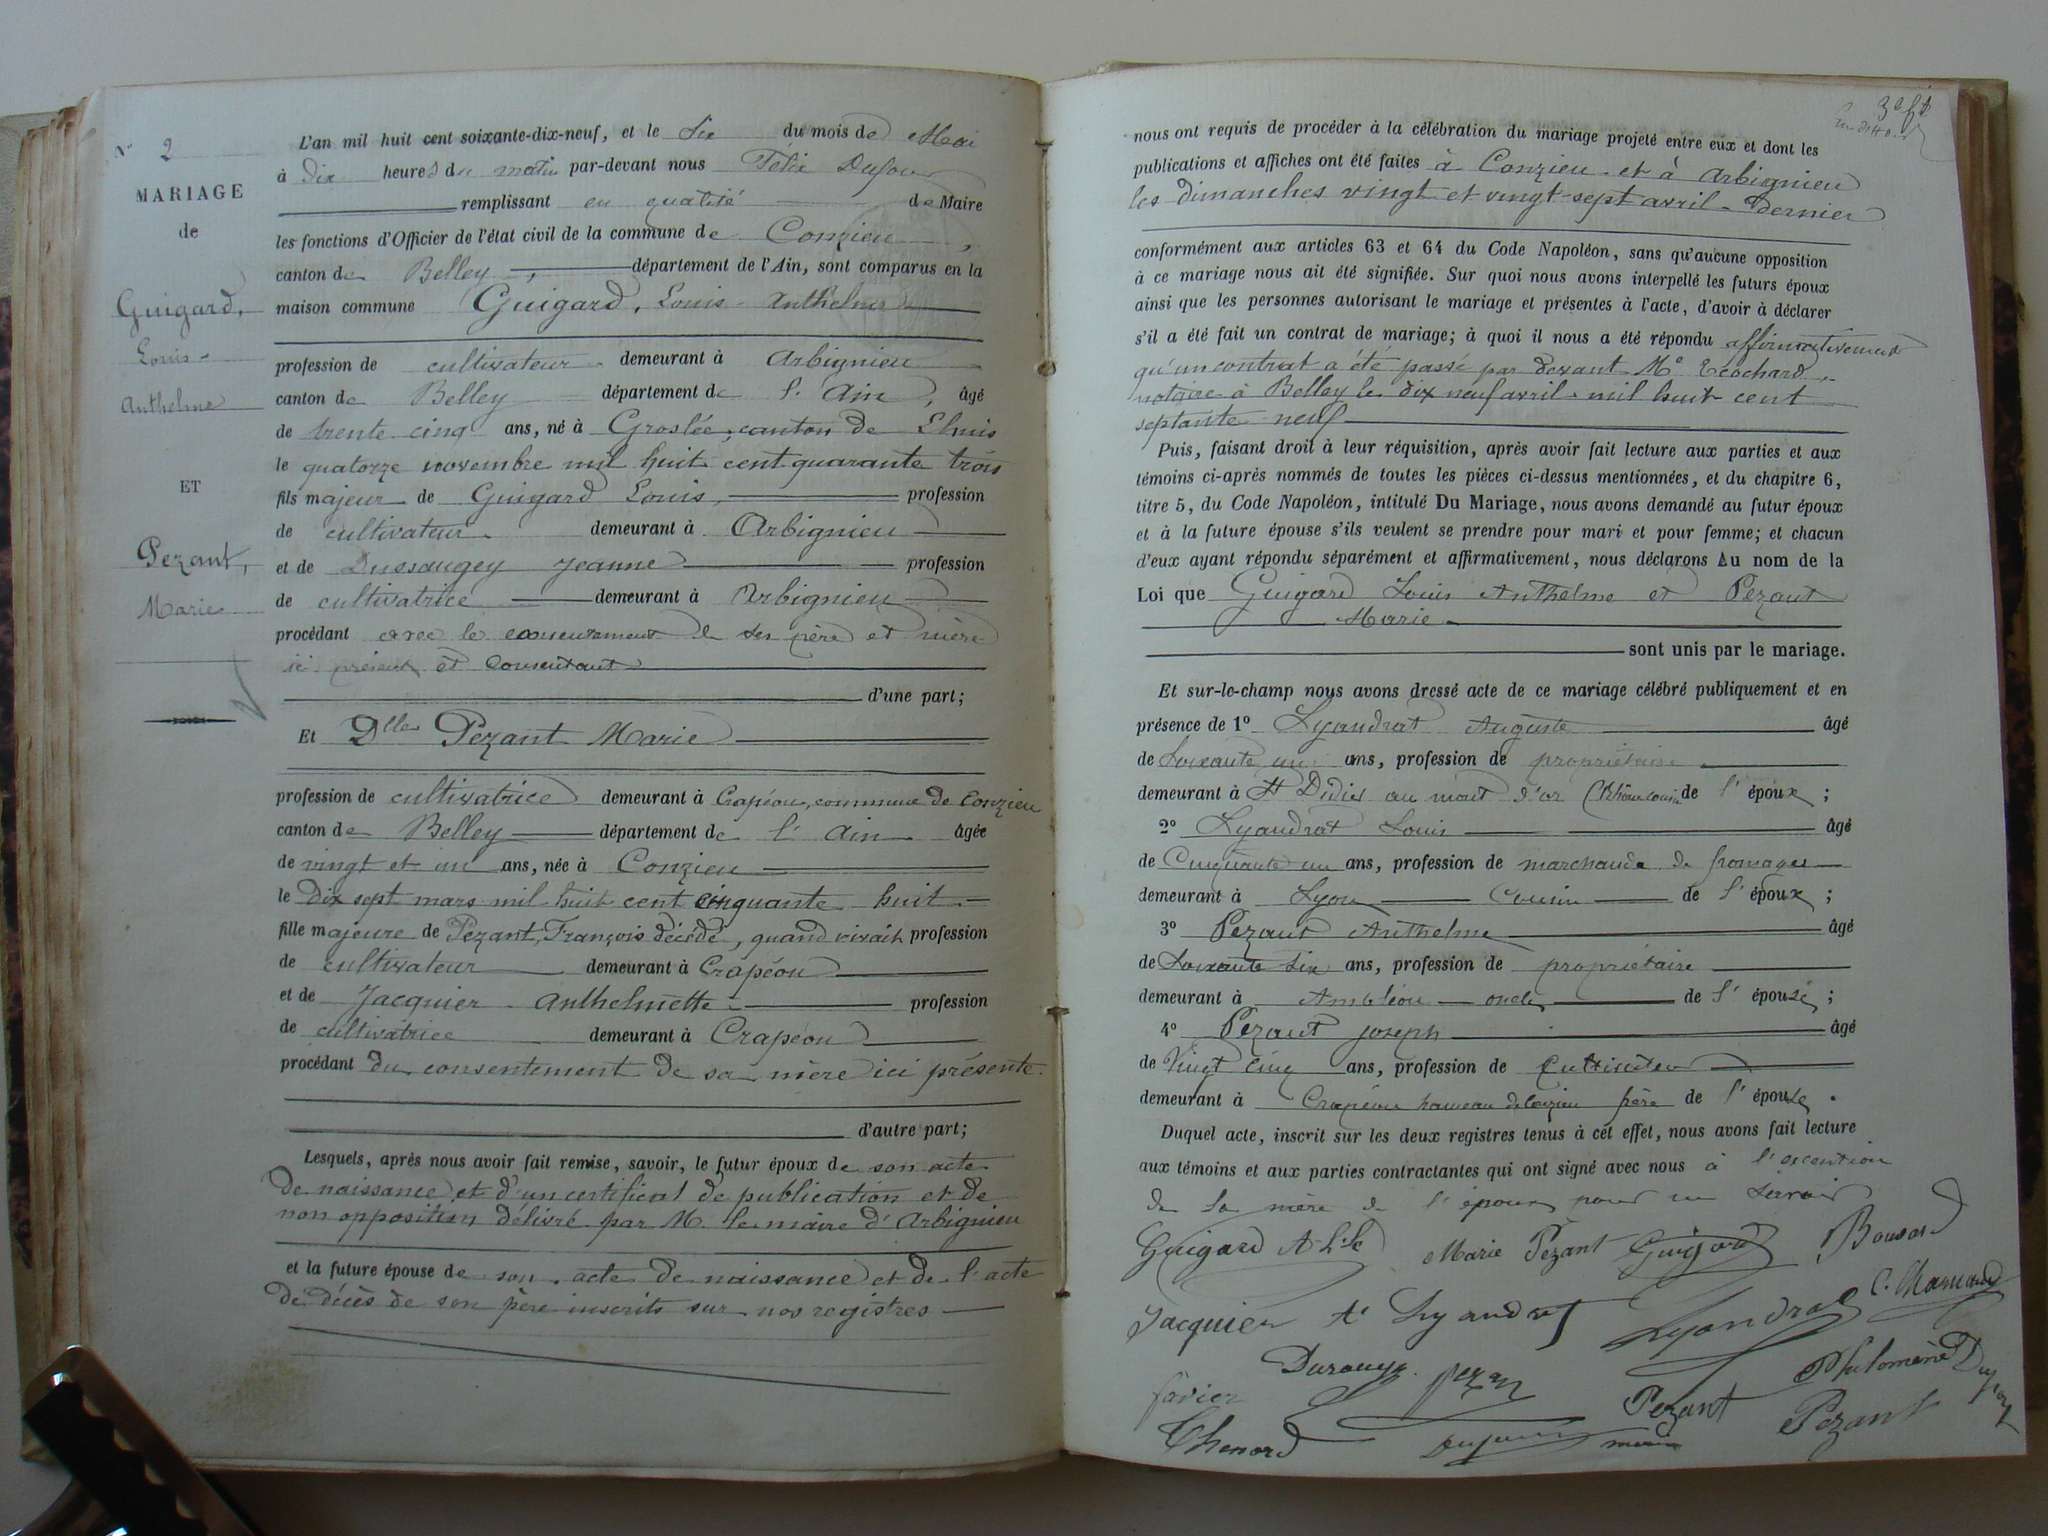 N° 2
MARIAGE
de
Guigard,
Louis-
Anthelme
ET
Pezant,
Marie
L'an mil huit cent soixante-dix-neuf, et le six du mois de Mai
à dix heures du matin par-devant nous Félix Dufour
remplissant en qualité de Maire
les fonctions d'Officier de l'état civil de la commune de Conzieu,
canton de Belley, département de l'Ain, sont comparus en la
maison commune Guigard, Louis-Anthelme
profession de cultivateur demeurant à Arbignieu
canton de Belley département de l'Ain, âgé
de trente cinq ans, né à Groslée, canton de Lhuis
le quatorze novembre mil huit cent quarante trois
fils majeur de Guigard Louis, profession
de cultivateur demeurant à Arbignieu
et de Dussaugey Jeanne profession
de cultivatrice demeurant à Arbignieu
procédant avec le consentement de ses père et mère
ici présents et consentants
d'une part;
Et Dlle Pezant Marie
profession de cultivatrice demeurant à Crapéou, commune de Conzieu
canton de Belley département de l'Ain âgée
de vingt et un ans, née à Conzieu
le dix sept mars mil huit cent cinquante huit
fille majeure de Pezant, François décédé, quand vivait profession
de cultivateur demeurant à Crapéou
et de Jacquier Anthelmette profession
de cultivatrice demeurant à Crapéou
procédant du consentement de sa mère ici présente.
d'autre part;
Lesquels, après nous avoir fait remise, savoir, le futur époux de son acte
de naissance et d'un certificat de publication et de
non opposition délivré par M. le maire d'Arbignieu
et la future épouse de son acte de naissance et de l'acte
de décès de son père inscrits sur nos registres
3e ft
nous ont requis de procéder à la célébration du mariage projeté entre eux et dont les
publications et affiches ont été faites à Conzieu et à Arbignieu
les dimanches vingt et vingt-sept avril dernier
conformément aux articles 63 et 64 du Code Napoléon, sans qu'aucune opposition
à ce mariage nous ait été signifiée. Sur quoi nous avons interpellé les futurs époux
ainsi que les personnes autorisant le mariage et présentes à l'acte, d'avoir à déclarer
s'il a été fait un contrat de mariage; à quoi il nous a été répondu affirmativement
qu'un contrat a été passé par devant Me Trochard,
notaire à Belley le dix neuf avril mil huit cent
septante neuf
Puis, faisant droit à leur réquisition, après avoir fait lecture aux parties et aux
témoins ci-après nommés de toutes les pièces ci-dessus mentionnées, et du chapitre 6,
titre 5, du Code Napoléon, intitulé Du Mariage, nous avons demandé au futur époux
et à la future épouse s'ils veulent se prendre pour mari et pour femme; et chacun
d'eux ayant répondu séparément et affirmativement, nous déclarons Au nom de la
Loi que Guigard Louis Anthelme et Pezant
Marie
sont unis par le mariage.
Et sur-le-champ nous avons dressé acte de ce mariage célébré publiquement et en
présence de 1° Lyandrat Auguste âgé
de soixante un ans, profession de propriétaire
demeurant à St Didier au mont d'or (Rhône cousin de l'époux;
2° Lyandrat Louis âgé
de Cinquante un ans, profession de marchand de fromages
demeurant à Lyon Cousin de l'époux;
3° Pezant Anthelme âgé
de soixante six ans, profession de propriétaire
demeurant à Ambléon oncle de l'épouse;
4° Pezant Joseph âgé
de Vingt cinq ans, profession de Cultivateur
demeurant à Crapéou hameau de Conzieu frère de l'épouse.
Duquel acte, inscrit sur les deux registres tenus à cet effet, nous avons fait lecture
aux témoins et aux parties contractantes qui ont signé avec nous à l'exception
de la mère de l'époux pour ne savoir
Guigard Marie Pezant Guigard
Jacquier A Lyandrat Lyandrat
Pezant Philomène
Favier Pezant Pezant
Thenard